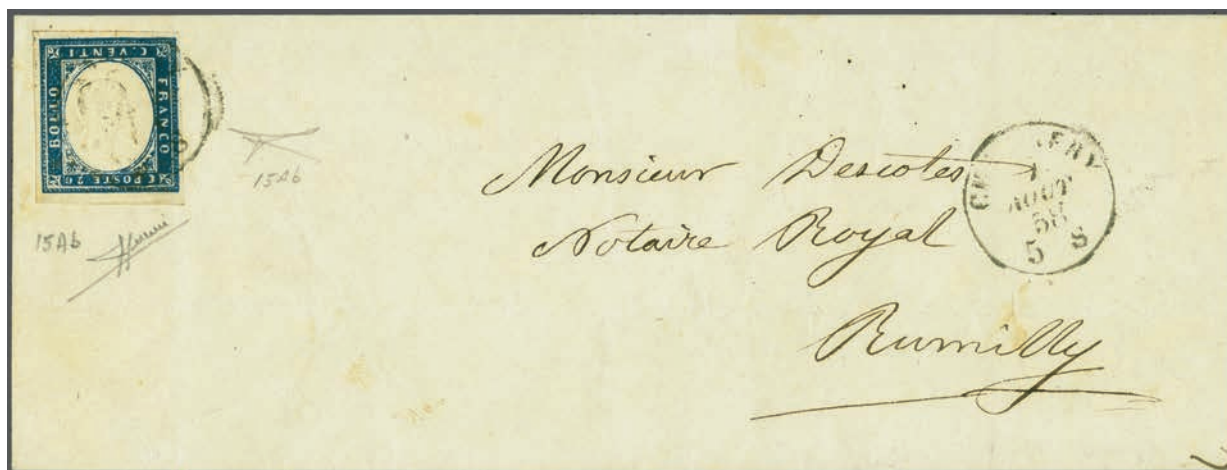 C. VENTI
BOLLO
FRANCO
C. POSTE 20
15Ab
15Ab
Monsieur Descotes
Notaire Royal
Rumilly
AOUT
58
5 S